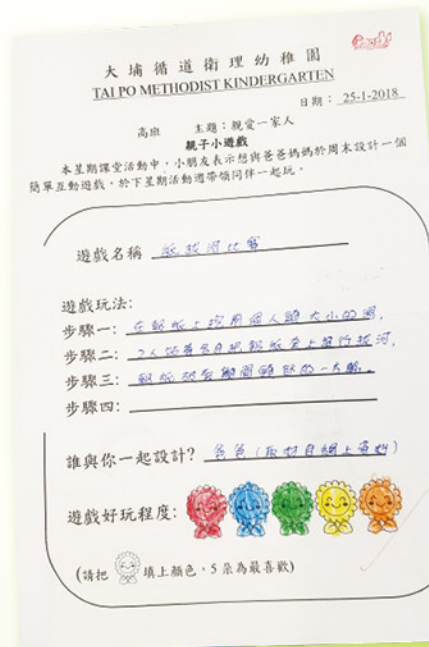 大埔循道衛理幼稚園
TAI PO METHODIST KINDERGARTEN
日期: 25-1-2018
高班 主題:親愛一家人
親子小遊戲
本星期課堂活動中,小朋友表示想與爸爸媽媽於周末設計一個
簡單互動遊戲,於下星期活動週帶領同伴一起玩。
遊戲名稱 紙拔河比賽
遊戲玩法:
步驟一: 在報紙上挖兩個人頭大小的洞,
步驟二: 2人各自把報紙套上進行拔河,
步驟三: 報紙破裂離開頸部的一方輸。
步驟四:
誰與你一起設計? 爸爸(取材自網上資料)
遊戲好玩程度:
(請把 填上顏色,5朵為最喜歡)